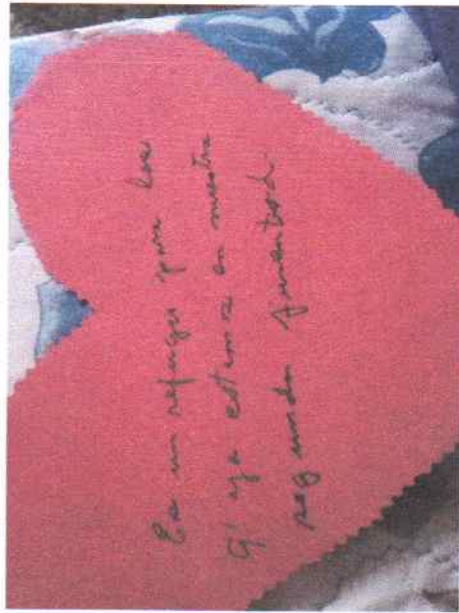 Es un refugio para los
q' ya estamos en nuestra
segunda juventud.